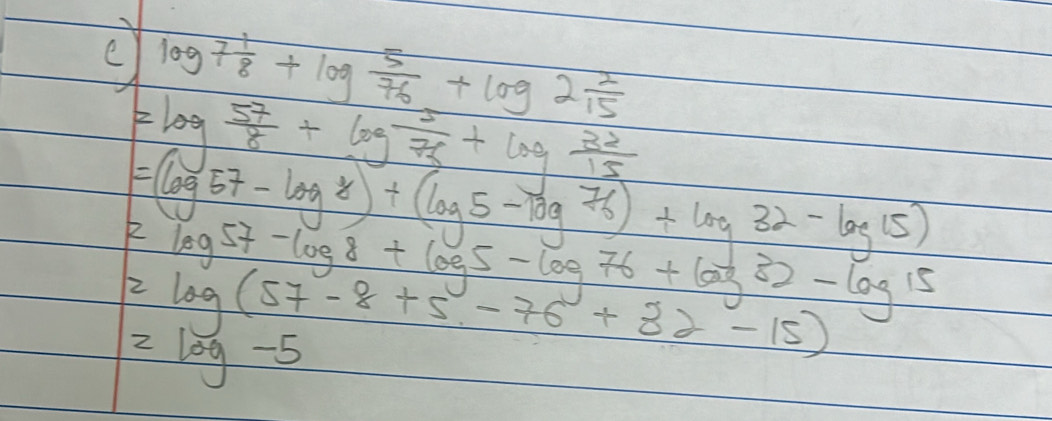 e) log 7 1/8 + log 5/76 + log 2 2/15
= log 57/8 + log 5/76 + log 32/15
= (log 57 - log 8) + (log 5 - log 76) + log 32 - log 15)
= log 57 - log 8 + log 5 - log 76 + log 32 - log 15
= log (57 - 8 + 5 - 76 + 32 - 15)
= log -5